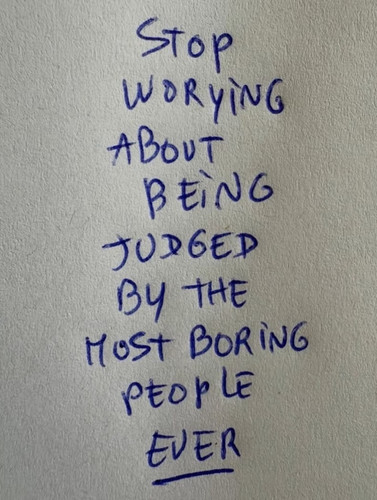 STOP
WORYiNG
ABOUT
BEiNG
JUDGED
BY THE
MOST BORiNG
PEOPLE
EVER